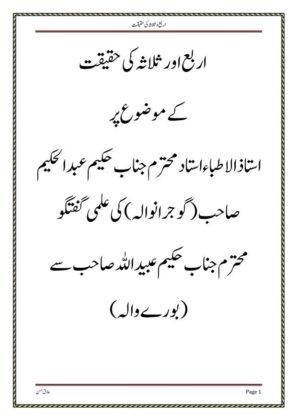 اربع اور ثلاثہ کی حقیقت
اربع اور ثلاثہ کی حقیقت
کے موضوع پر
استاذ الاطباء استاد محترم جناب حکیم عبدالحکیم
صاحب (گوجرانوالہ) کی علمی گفتگو
محترم جناب حکیم عبیداللہ صاحب سے
(بورے والہ)
Page 1